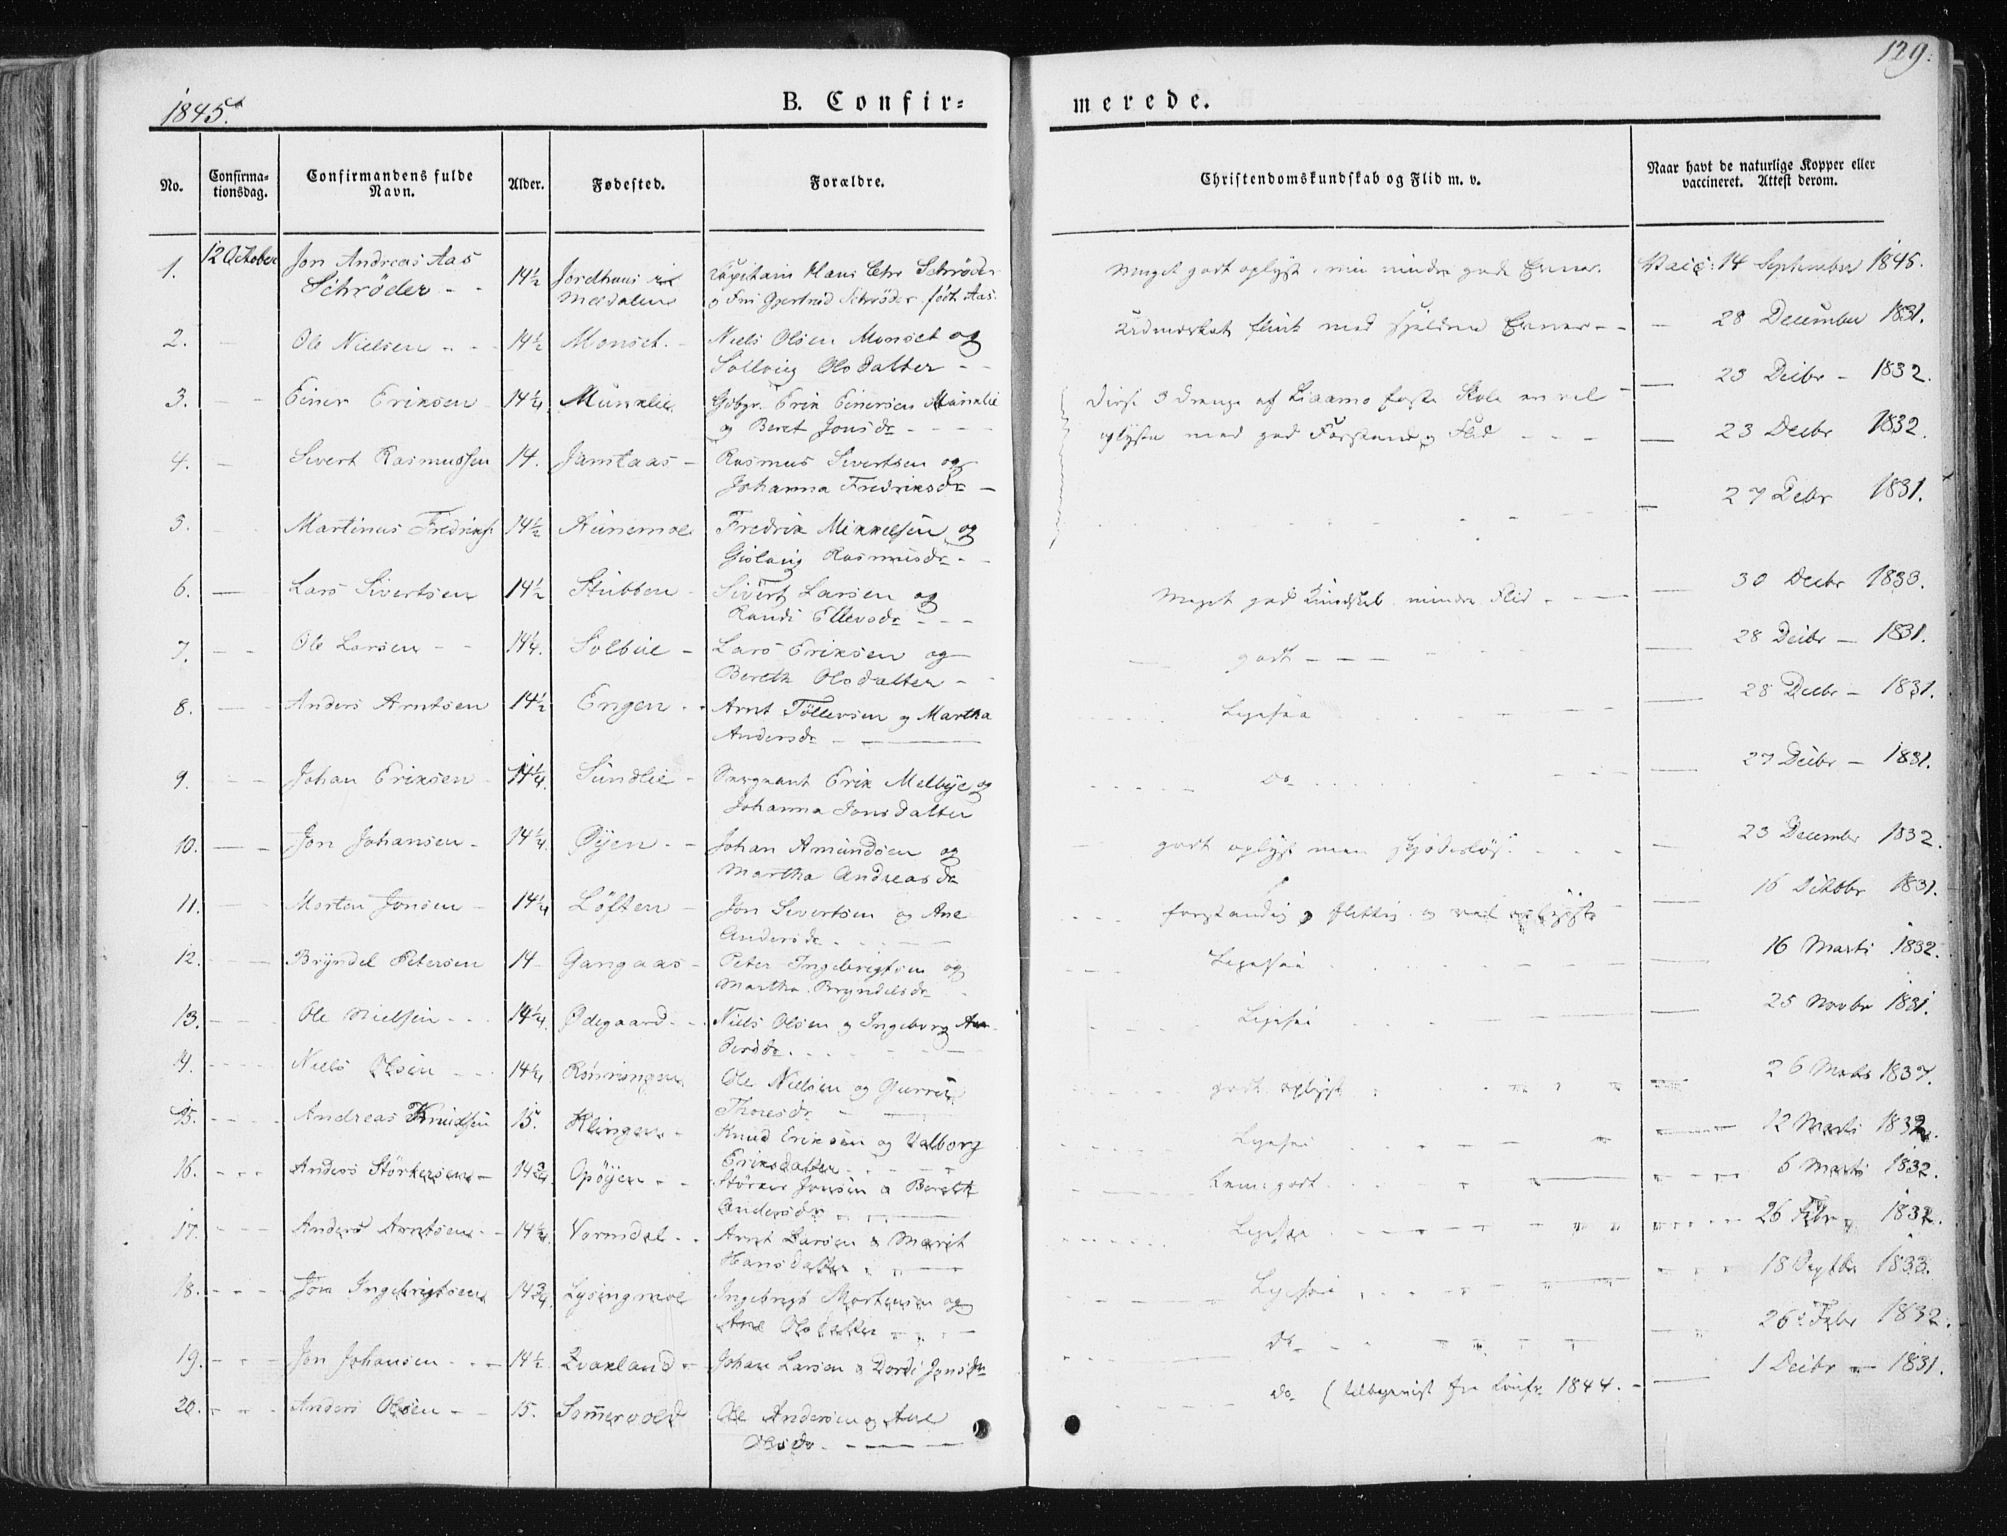 129.
1845.
B. Confir= merede.
No. Confirma-tionsdag. Confirmandens fulde Navn. Alder. Fødested. Forældre. Christendomskundskab og Flid m. v. Naar havt de naturlige Kopper eller vaccineret. Attest derom.
1. 12 October Jon Andreas Aas 14½ Capitain Hans Chr Schrøder Meget godt oplyst, men mindre gode Evner. Vacc: 14 September 1845.
Schrøder - - Meldalen og Fru Gjertrud Schrøder født Aas.
2. Ole Nielsen - - 14½ Monset - Niels Olsen Monset og Udmærket flink med sjeldne Evner - - 28 December 1831.
Sollvig Olsdatter - -
3. Einer Eriksen 14¼ Munklie Gbgr. Erik Einersen Munklie Disse 3 Drenge af faste Skole ere vel 23 Decbr - 1832.
og Beret Jonsdr - - - oplyste med god Forstand og Flid - - 23 Decbr 1832.
4. Sivert Rasmussen 14. Jamtaas - Rasmus Sivertsen og
Johanna Fredriksdr - 27 Debr 1831.
5. Martinus Fredriks. 14½ Runemoe Fredrik Mikkelsen og
Gislaug Rasmusdr -
6. Lars Sivertsen 14½ Stubben - Sivert Larsen og Meget god Kundskab mindre Flid - - 30 Decbr 1830.
Randi Ellevsdr - - -
7. Ole Larsen - - 14¼. Solbue - Lars Eriksen og godt - - - 28 Decbr - 1831.
Bereth Olsdatter -
8. Anders Arntsen 14½ Engen - - Arnt Tøllevsen og Martha Ligesaa 28 Decbr - 1831.
Andersdr -
9. Johan Eriksen - 14¼. Sundlie - Sergeant Erik Melbye og Do 27 Decbr - 1831.
Johanna Jonsdatter
10. Jon Johansen - 14¼. Øyen - - Johan Amundsen og godt oplyst men skjødesløs. 23 December 1832.
Martha Andreasdr
11. Morten Jonsen - 14¼ Løften - Jon Sivertsen og Ane forstandig, flittig og vel oplyst 16 Oktobr 1831.
Andersdr -
12. Bryndel Petersen 14 Gangaas - Peter Ingebrigtsen og Ligesaa 16 Marti 1832.
Martha Bryndelsdr
13. Ole Nielsen - - - 14¼. Ødegaard - - Niels Olsen og Ingeborg An- Ligesaa 25 Novbr 1831.
dersdr.
14. Niels Olsen - - - 14¼ Rønningen Ole Nielsen og Gurru godt oplyst 26 Marts 1837.
Thoresdr -
15. Andreas Knudsen 15. Klingen - Knud Eriksen og Valborg Ligesaa 12 Marti 1832.
Eriksdatter - -
16. Anders Størkersen - 14¾ Opøyen - - Størker Jonsen & Bereth godt 6 Marts 1832.
Andersdr
17. Anders Arntsen - - 14¼ Vormdal - - Arnt Larsen & Marit Ligesaa 26 Febr 1832.
Hansdatter
18. Jon Ingebrigtsen 14¾ Lysingmoe Ingebrigt Mortensen og Ligesaa 18 Septbr 1833.
Ane Olsdatter do 26 Febr 1832.
19. Jon Johansen - - - 14½ Kvakland - Johan Larsen & Dordi Jonsdr 1 Decbr - 1831.
20. Anders Olsen - - 15. Somervold Ole Andersen og Ane do (tilbagevist fra Confn 1844. -
Olsdr - - - -